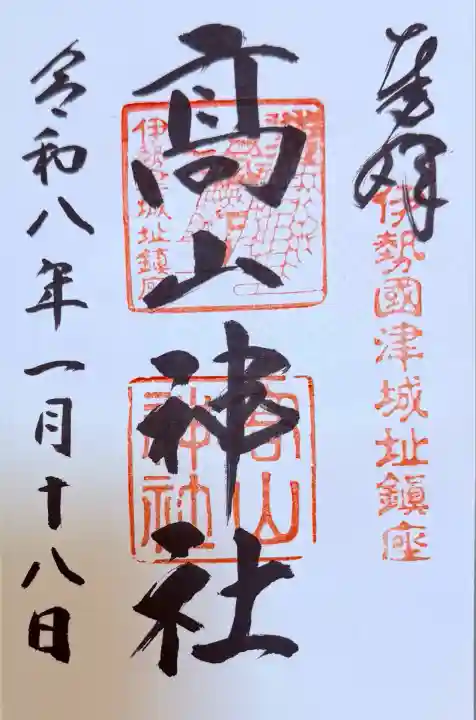 奉拝
伊勢國津城址鎮座
髙山神社
伊勢
城址鎮座
高山
神社
令和八年一月十八日